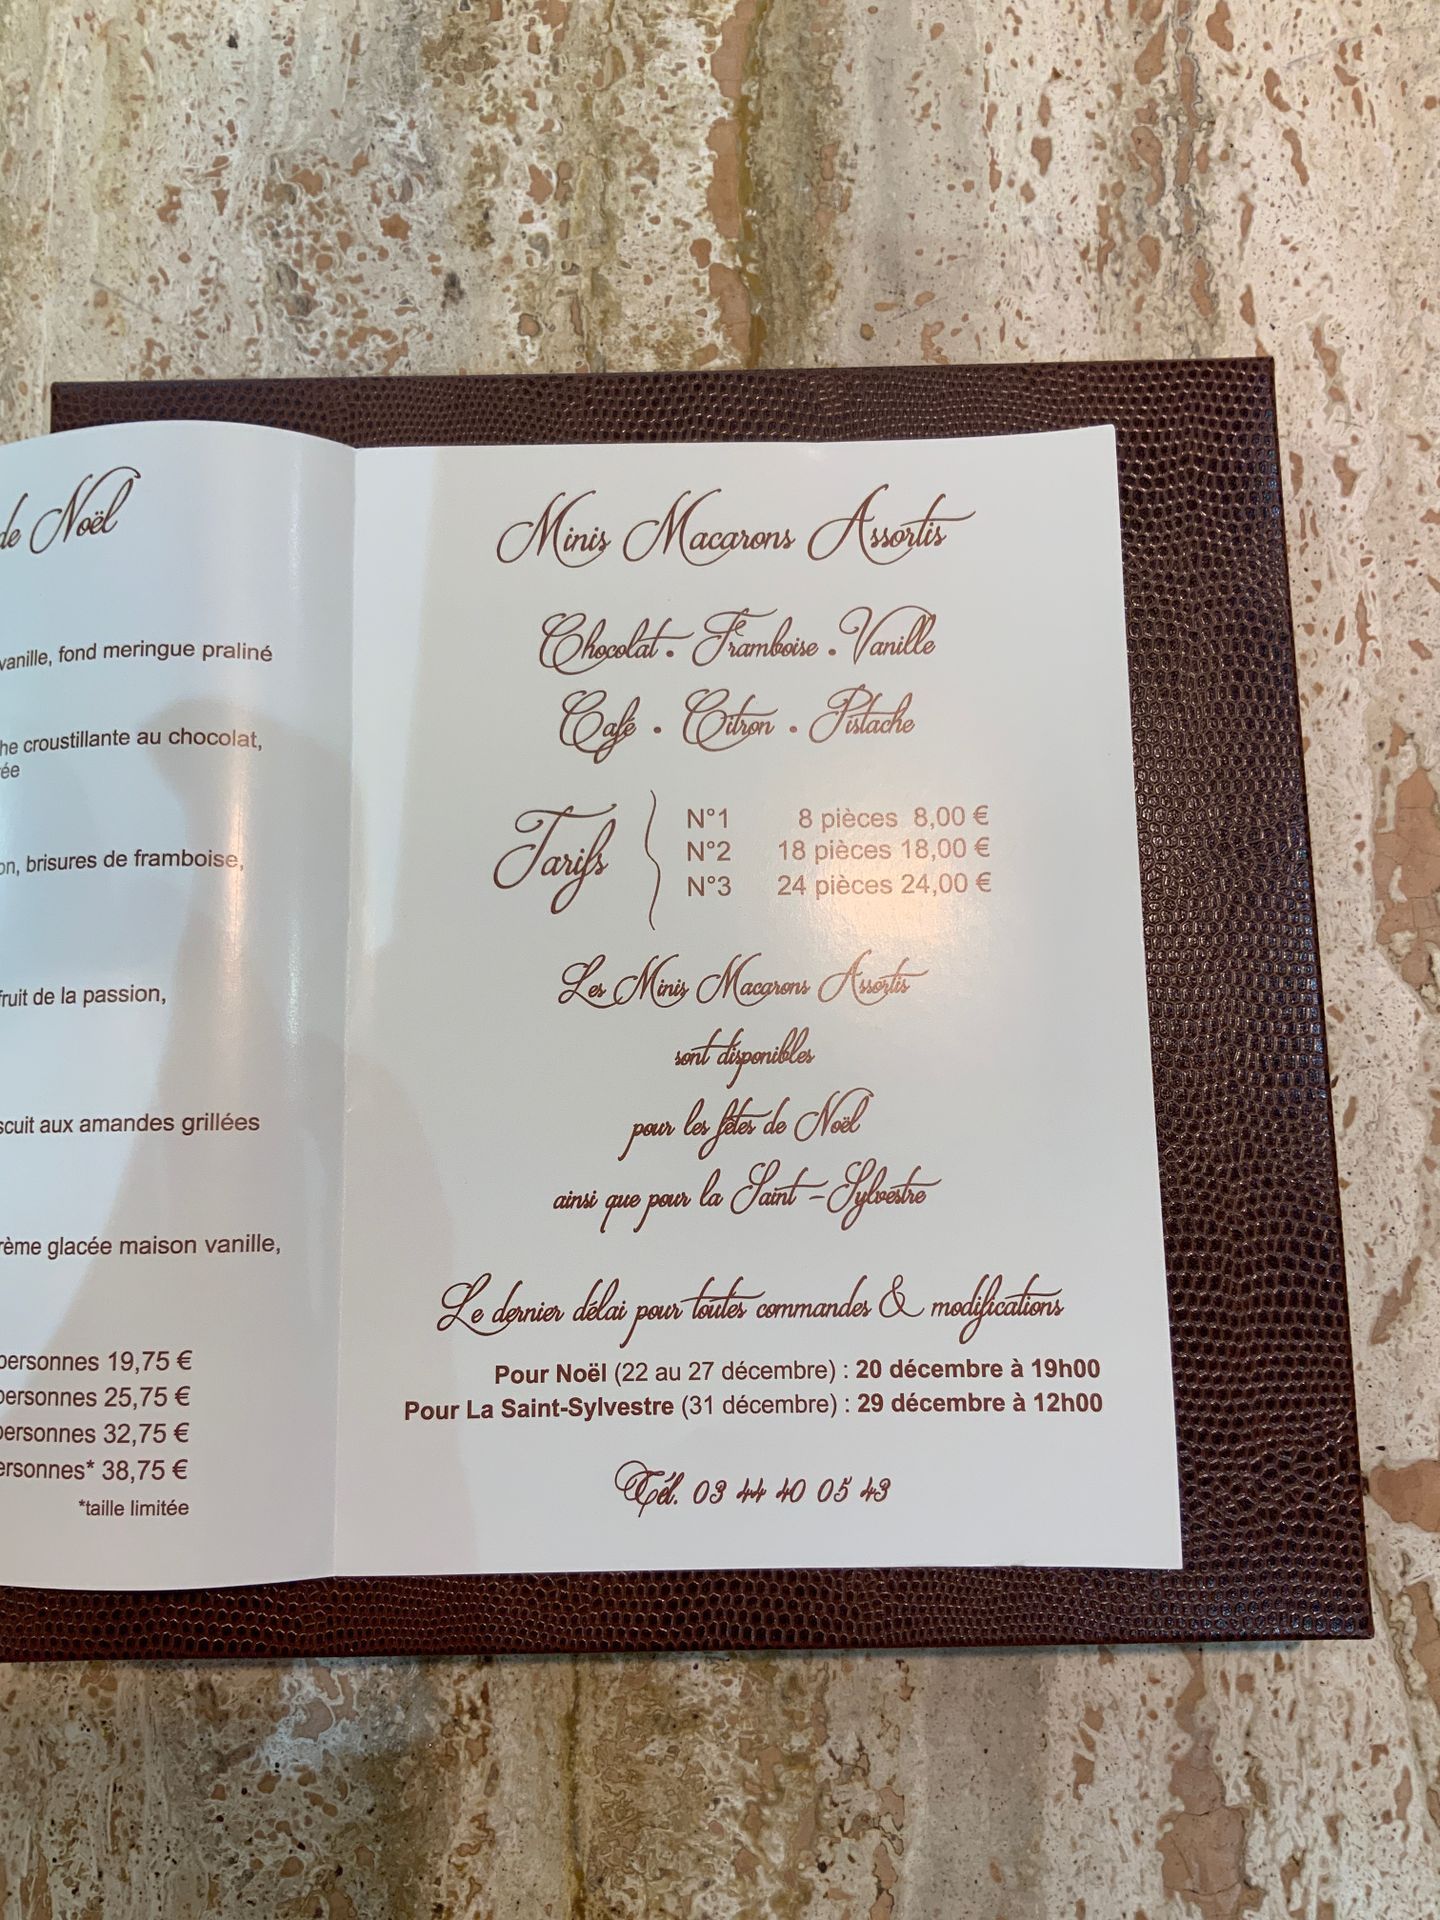 de Noël
vanille, fond meringue praliné
he croustillante au chocolat,
ée
on, brisures de framboise,
fruit de la passion,
scuit aux amandes grillées
rème glacée maison vanille,
personnes 19,75 €
personnes 25,75 €
personnes 32,75 €
ersonnes* 38,75 €
*taille limitée
Minis Macarons Assortis
Chocolat . Framboise . Vanille
Café . Citron . Pistache
Tarifs
N°1 8 pièces 8,00 €
N°2 18 pièces 18,00 €
N°3 24 pièces 24,00 €
Les Minis Macarons Assortis
sont disponibles
pour les fêtes de Noël
ainsi que pour la Saint - Sylvestre
Le dernier délai pour toutes commandes & modifications
Pour Noël (22 au 27 décembre) : 20 décembre à 19h00
Pour La Saint-Sylvestre (31 décembre) : 29 décembre à 12h00
Tél. 03 44 40 05 43